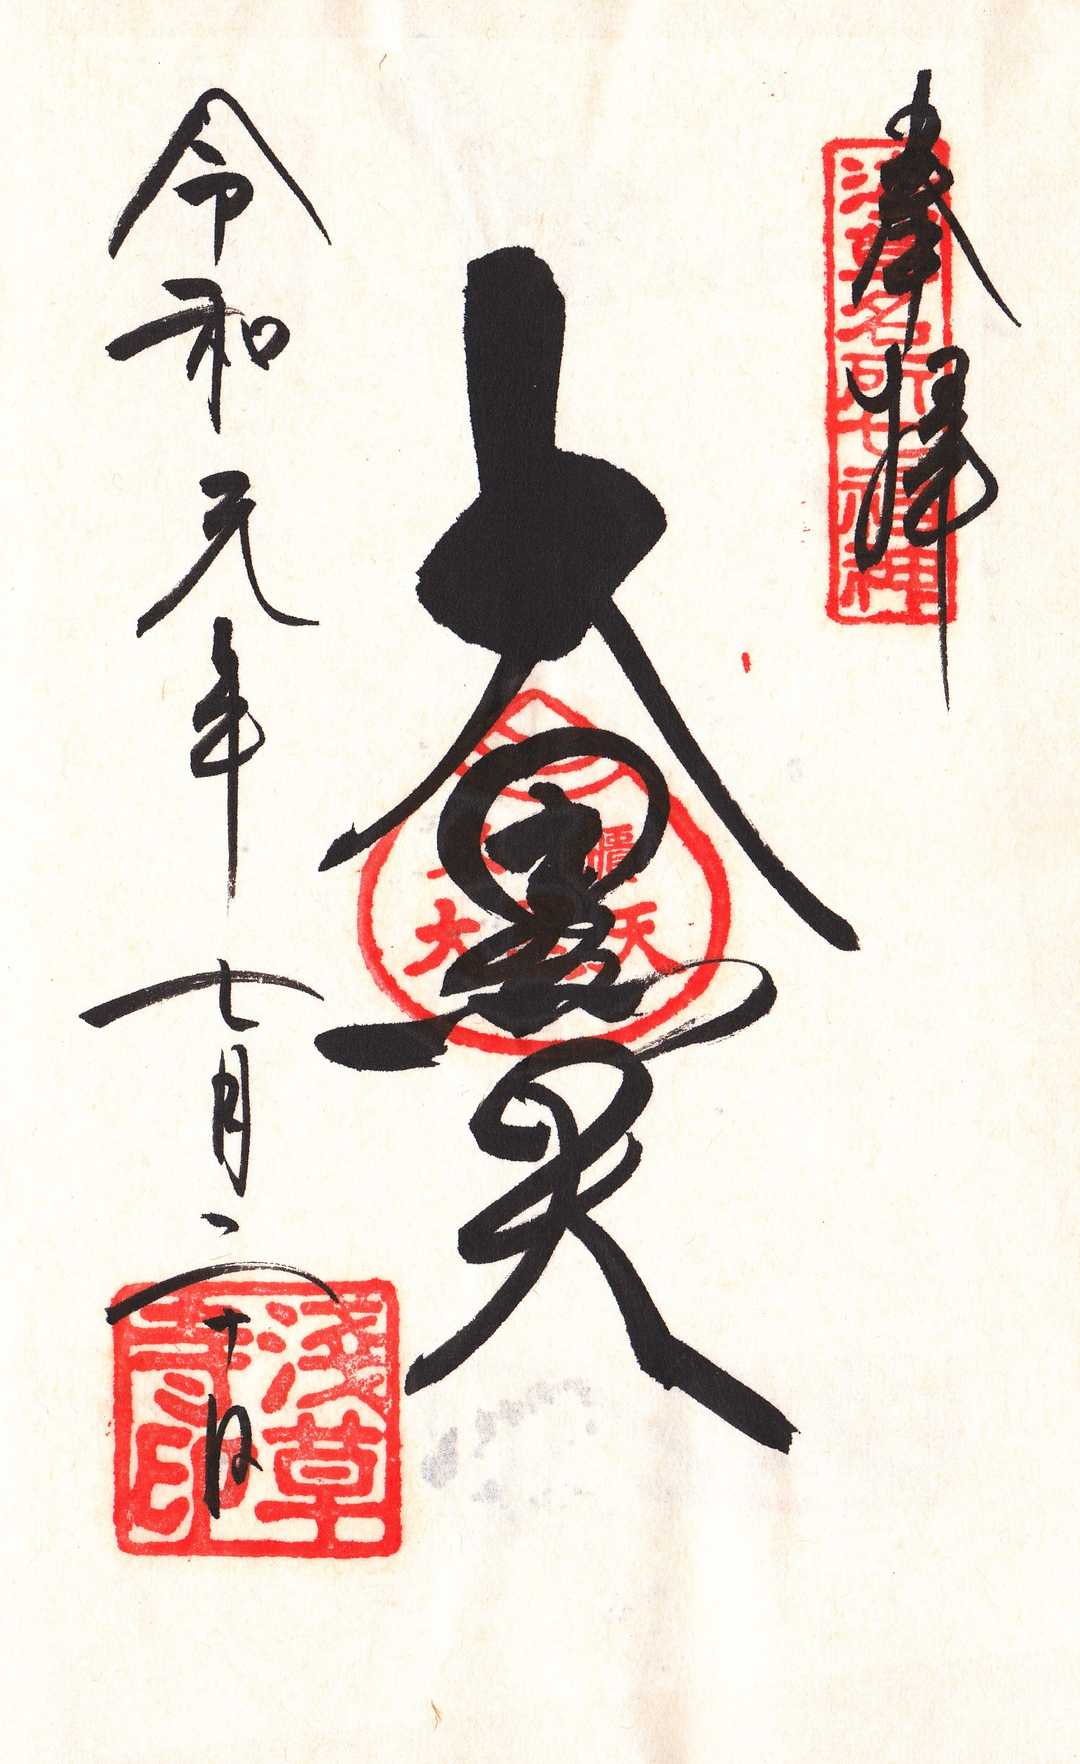 奉拝
浅草名所七福神
大黒天
令和元年七月二十日
浅草
寺印